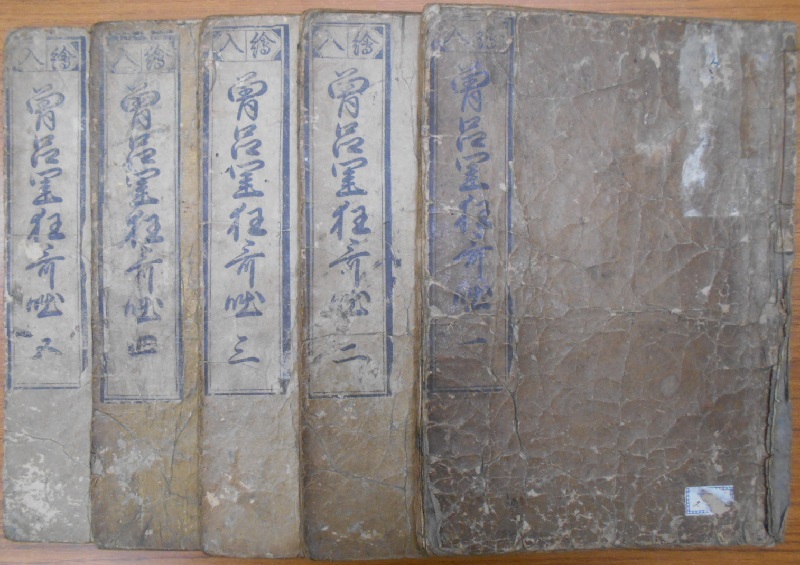 繪入
曾呂里狂哥咄 一
繪入
曾呂里狂哥咄 二
繪入
曾呂里狂哥咄 三
繪入
曾呂里狂哥咄 四
繪入
曾呂里狂哥咄 五